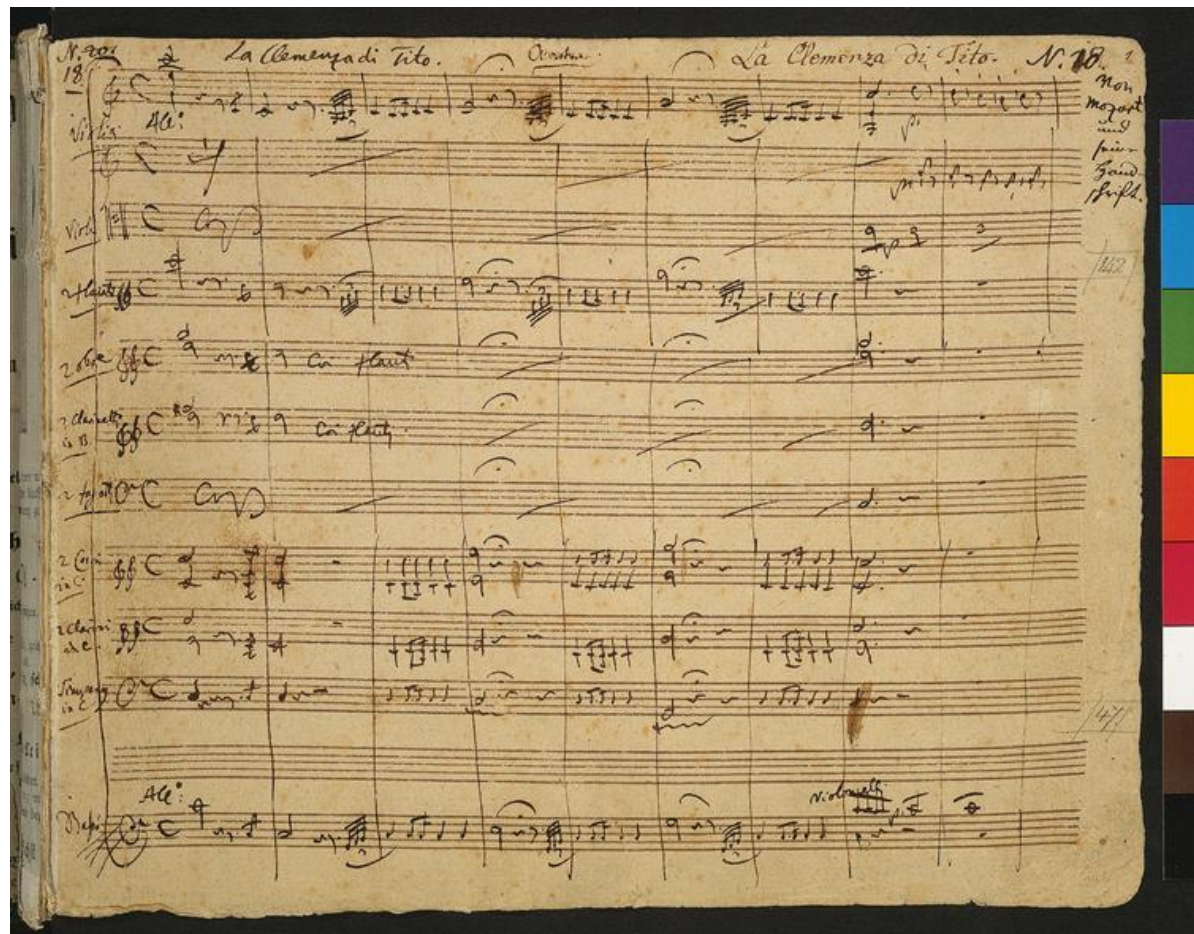 N. 20. La Clemenza di Tito. Overtura. La Clemenza di Tito. N. 18. 1
18.
Von
Mozart
und
seine
Hand-
schrift.
All:
Violini
Viole Col B
2 flauti
2 oboe Coi flauti
2 Clarinetti
in B Coi flauti
2 fagotti Col B
2 Corni
in C
2 Clarini
in C.
in C
142
147
All:
Violoncelli
Bassi